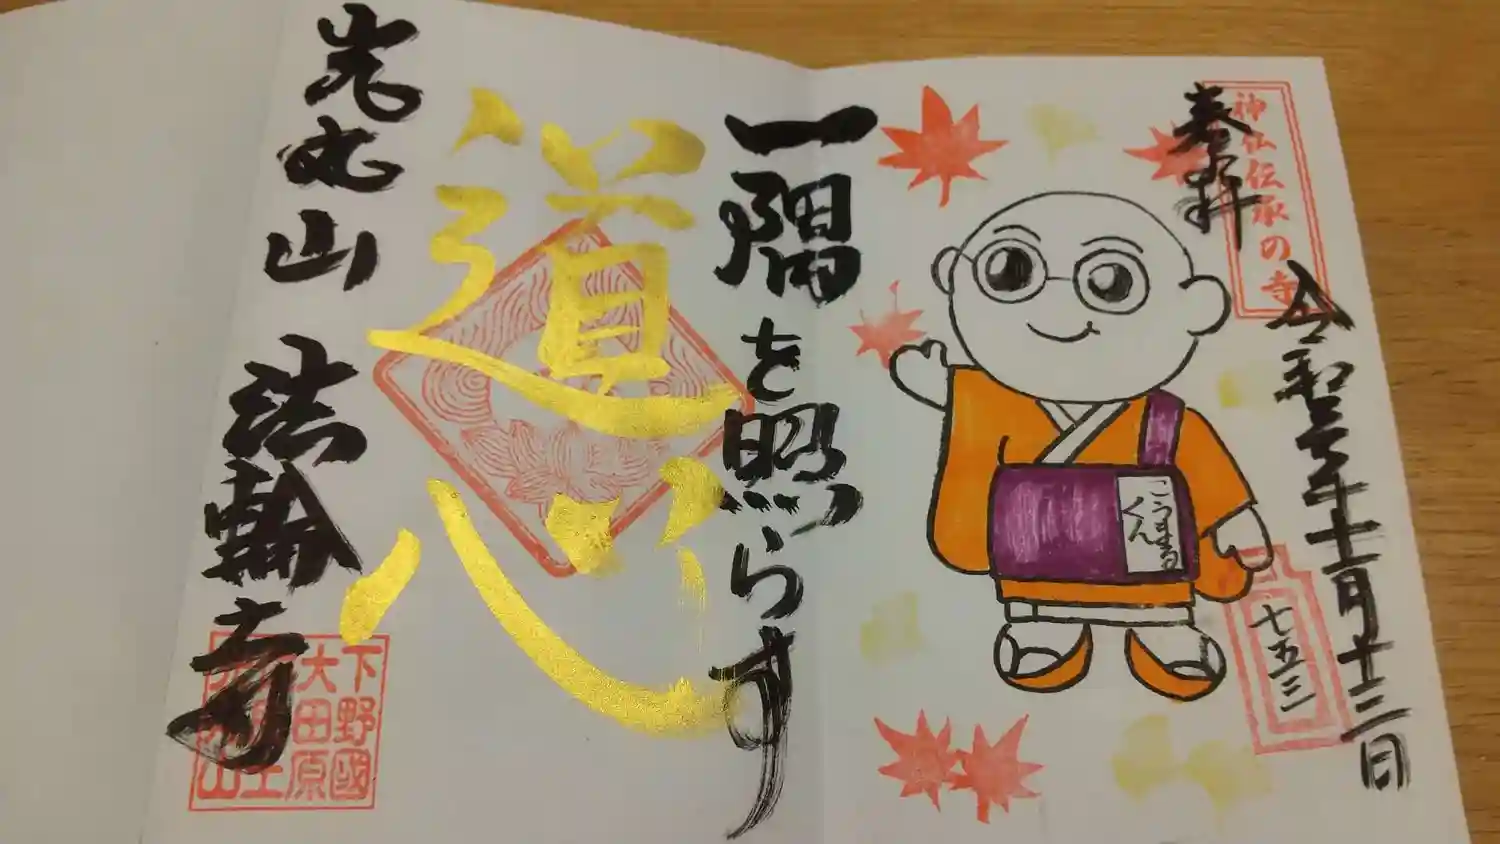 神仏伝承の寺
奉拝
令和 年十一月十三日
七五三
こうまる
くん
一隅を照らす
道心
光丸山 法輪寺
下野國
大田原